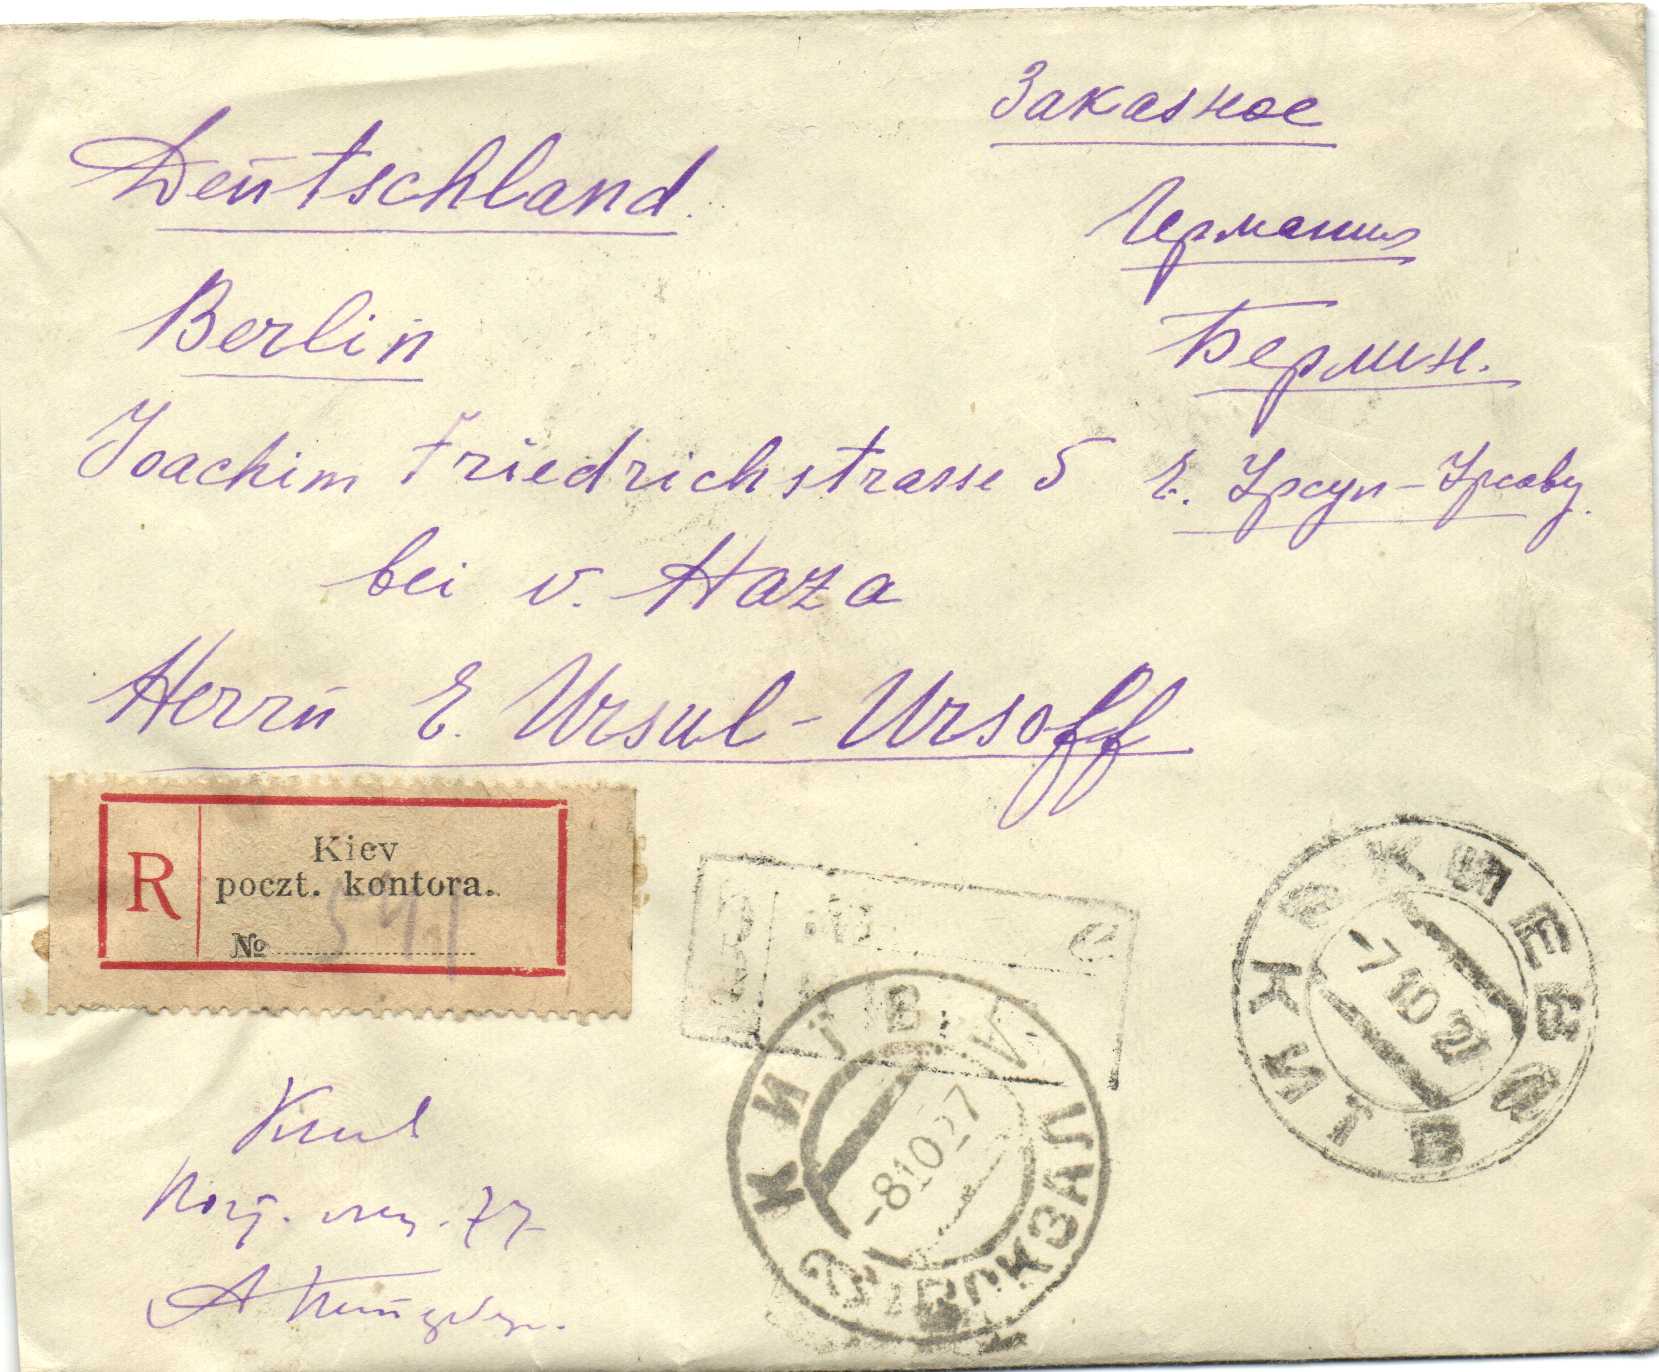 Заказное
Deutschland.
Германия
Berlin
Берлин.
Joachim Friedrichstrasse 5
Е. Урсул-Урсову.
bei v. Haza
Herrn E. Ursul-Ursoff
R
Kiev
poczt. kontora.
№ 541
КИЕВ КИЇВ
-7 10 27
КИЇВ ВОКЗАЛ
-8 10 27
Киев
77